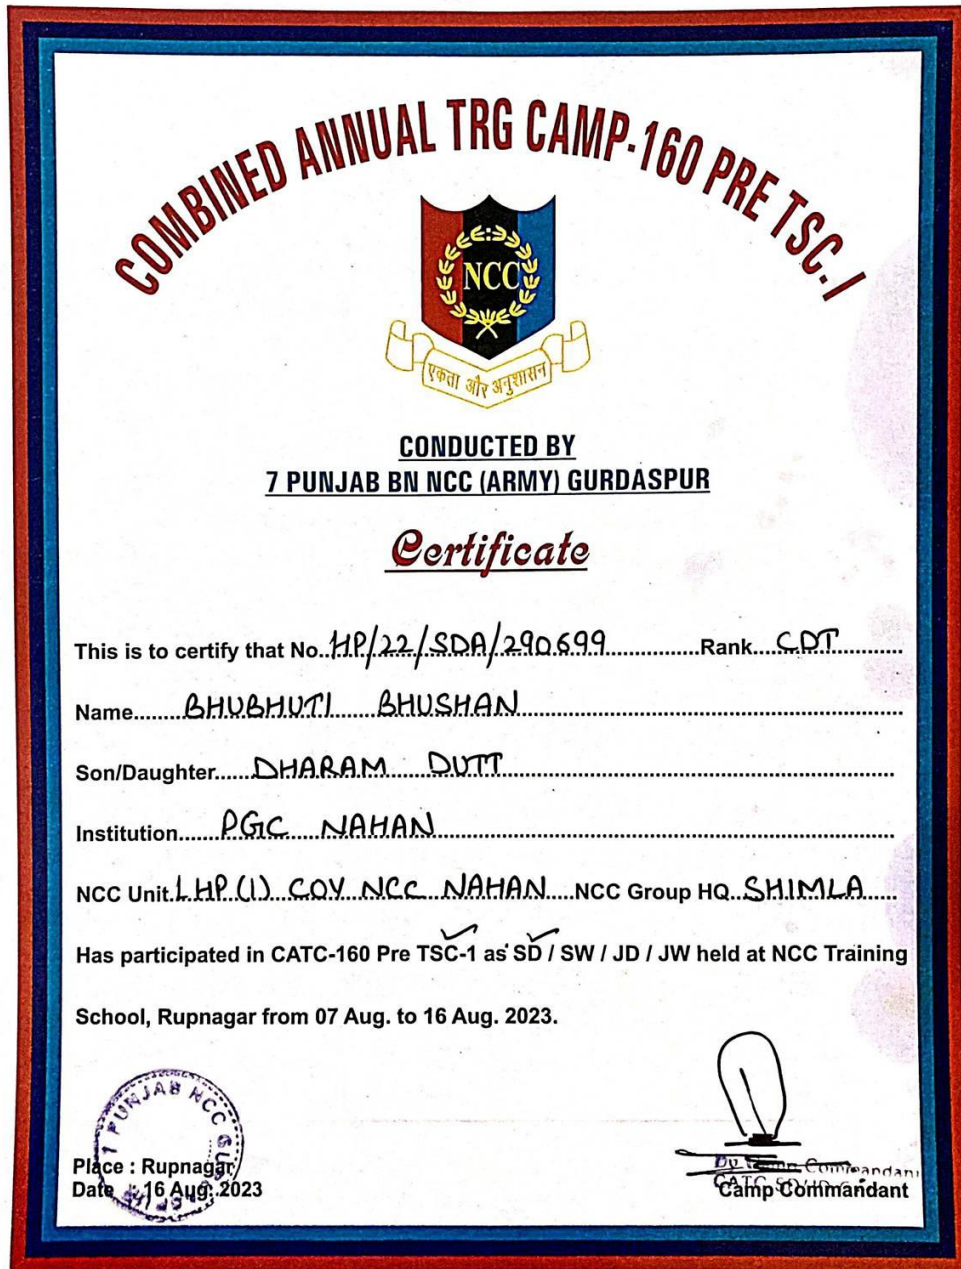 COMBINED ANNUAL TRG CAMP-160 PRE TSC.I
NCC
एकता और अनुशासन
CONDUCTED BY
7 PUNJAB BN NCC (ARMY) GURDASPUR
Certificate
This is to certify that No. HP/22/SDA/290699 Rank CDT
Name BHUBHUTI BHUSHAN
Son/Daughter DHARAM DUTT
Institution PGC NAHAN
NCC Unit 1 HP (1) COY NCC NAHAN NCC Group HQ SHIMLA
Has participated in CATC-160 Pre TSC-1 as SD / SW / JD / JW held at NCC Training
School, Rupnagar from 07 Aug. to 16 Aug. 2023.
7 PUNJAB NCC
Place : Rupnagar
Date : 16 Aug. 2023
Dy Commandant
CATC
Camp Commandant